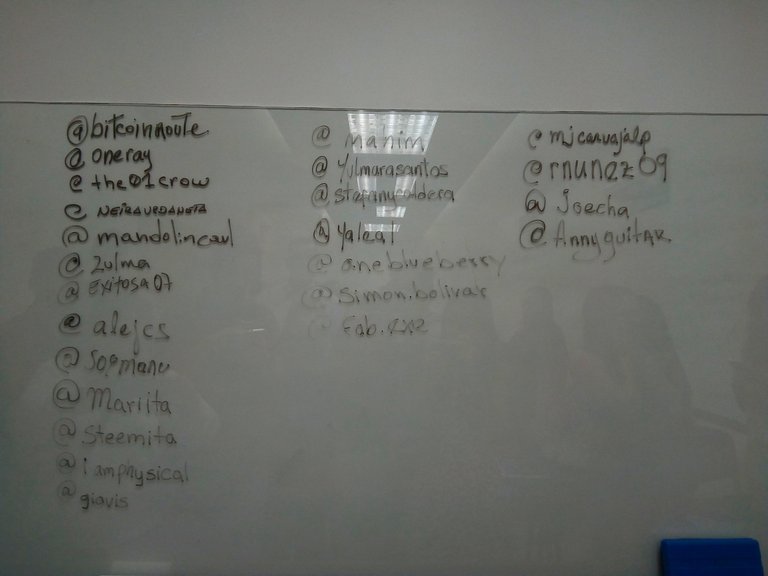 @bitcoinroute
@oneray
@the01crow
@NEIRAURDANETA
@mandolincaul
@zulma
@Exitosa07
@alejcs
@Mariita
@Steemita
@iamphysical
@giavis
@manim
@Yulmarasantos
@stefannycaldera
@Yaleal
@oneblueberry
@Simon.bolivar
@mjcarvajalp
@rnunez09
@Joecha
@AnnyguitaR